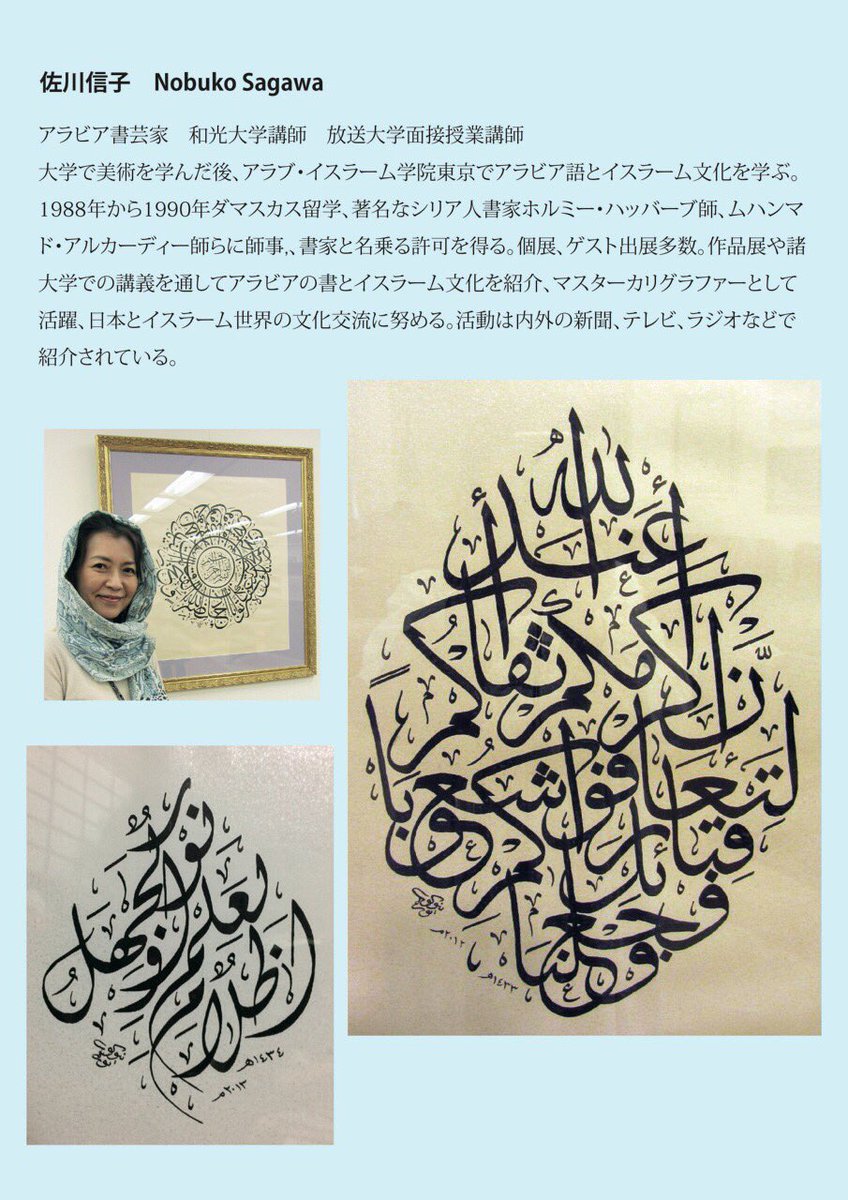 佐川信子　Nobuko Sagawa
アラビア書芸家　和光大学講師　放送大学面接授業講師
大学で美術を学んだ後、アラブ・イスラーム学院東京でアラビア語とイスラーム文化を学ぶ。
1988年から1990年ダマスカス留学、著名なシリア人書家ホルミー・ハッバーブ師、ムハンマ
ド・アルカーディー師らに師事,、書家と名乗る許可を得る。個展、ゲスト出展多数。作品展や諸
大学での講義を通してアラビアの書とイスラーム文化を紹介、マスターカリグラファーとして
活躍、日本とイスラーム世界の文化交流に努める。活動は内外の新聞、テレビ、ラジオなどで
紹介されている。
وجعلناكم شعوباً وقبائل لتعارفوا إنّ أكرمكم عند الله أتقاكم
١٤٣٣هـ
٢٠١٢م
العلم نور والجهل ظلام
١٤٣٤هـ
٢٠١٣م